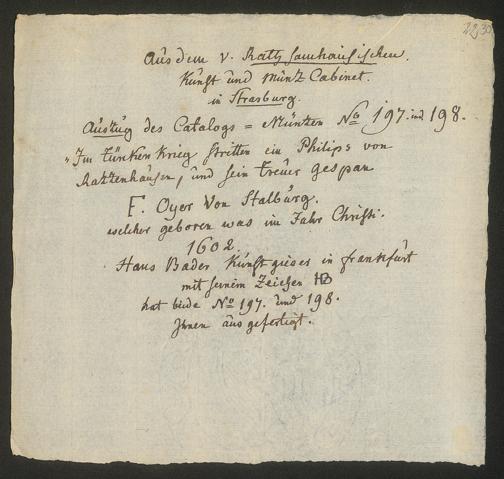 Aus dem v. Ratzsamhausischen
Kunst und Müntz Cabinet.
in Strasburg.
Auszug des Catalogs = Müntzen No 197. und 198.
"Im türken krieg stritten ein Philips von
Ratzenhausen, und sein treuer gespan
F. Oyer Von Stalburg.
welcher geboren was im Jahr Christi.
1602.
Hans Bader Kunstgieser in frankfurt
mit seinem Zeichen HB
hat beide No 197. und 198.
Ihnen aus gefertigt.